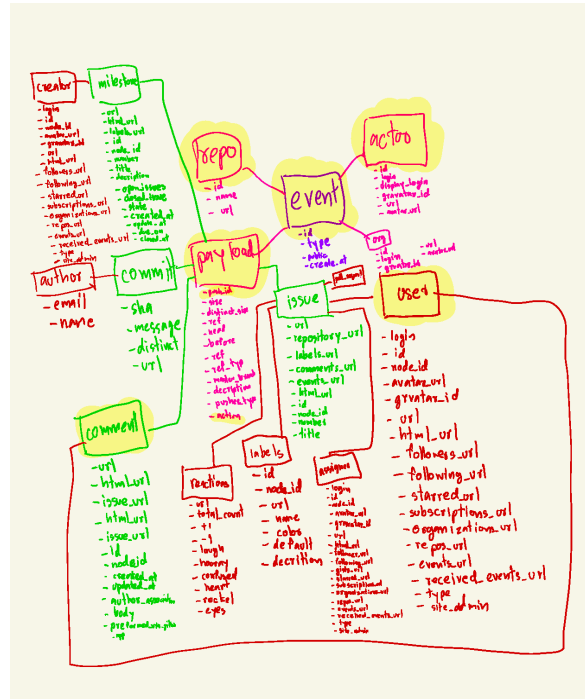 creator
- login
- id
- node_id
- avatar_url
- gravatar_id
- url
- html_url
- followers_url
- following_url
- starred_url
- subscriptions_url
- organizations_url
- repos_url
- events_url
- received_events_url
- type
- site_admin
milestone
- url
- html_url
- labels_url
- id
- node_id
- number
- title
- decription
- open_issues
- closed_issue
- state
- created_at
- update_at
- due_on
- closed_at
repo
- id
- name
- url
actor
- id
- login
- display_login
- gravatar_id
- url
- avatar_url
event
- id
- type
- public
- create_at
org
- id
- login
- gravatar_id
- url
- avatar_url
author
- email
- name
commit
- sha
- message
- distinct
- url
payload
- push_id
- size
- distinct_size
- ref
- head
- before
- ref
- ref_typ
- decription
- pusher_typ
- action
issue
- url
- repository_url
- labels_url
- comments_url
- events_url
- html_url
- id
- node_id
- number
- title
user
- login
- id
- node_id
- avatar_url
- grvatar_id
- url
- html_url
- followers_url
- following_url
- starred_url
- subscriptions_url
- organizations_url
- repos_url
- events_url
- received_events_url
- type
- site_admin
comment
- url
- html_url
- issue_url
- html_url
- issue_url
- id
- node_id
- created_at
- updated_at
- author_association
- body
reactions
- url
- total_count
- +1
- -1
- laugh
- hooray
- confused
- heart
- rocket
- eyes
labels
- id
- node_id
- url
- name
- color
- default
- decrition
assignee
- login
- id
- node_id
- avatar_url
- gravatar_id
- url
- html_url
- followers_url
- following_url
- gists_url
- starred_url
- subscription_url
- organizations_url
- repos_url
- events_url
- received_events_url
- type
- site_admin